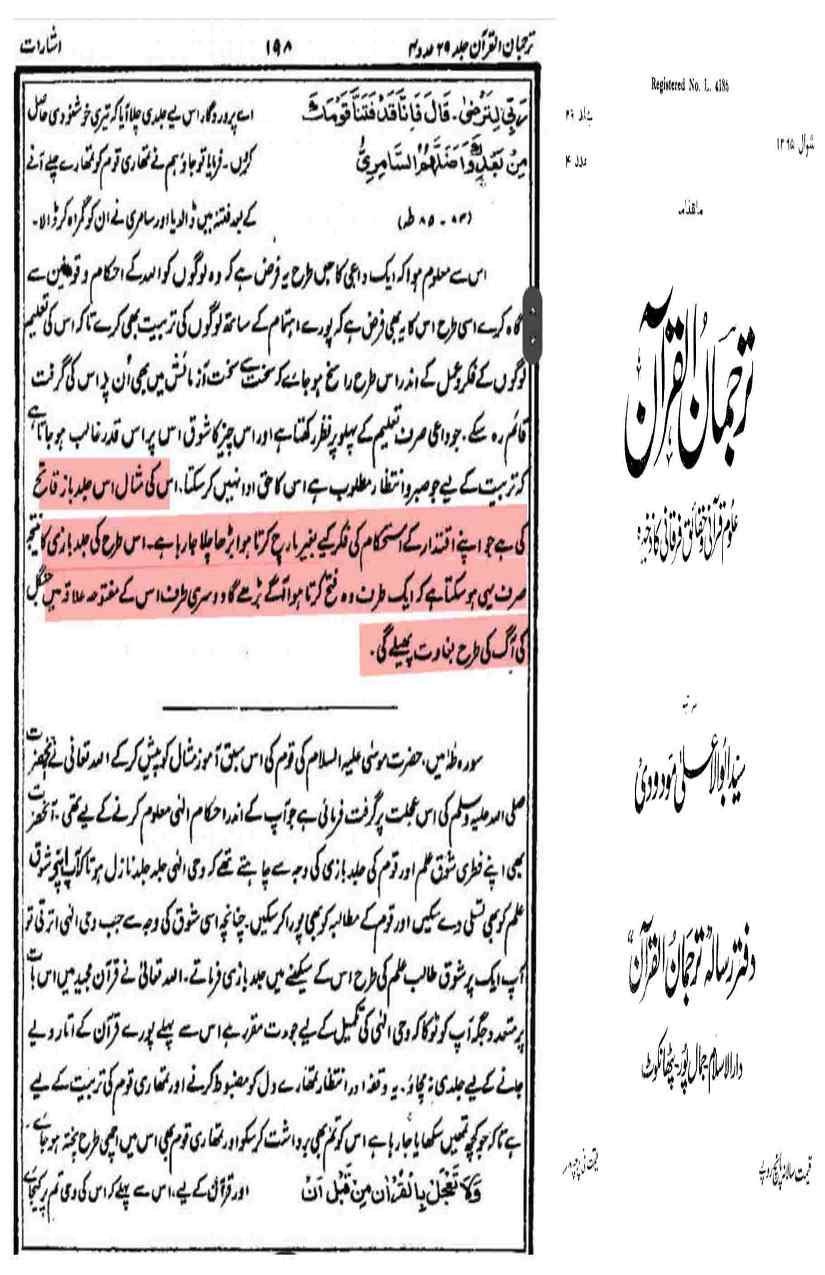 ترجمان القرآن جلد ۲۹ عدد ۴
۱۹۸
اشارات
رَبِّ لِتَرْضٰی۔ قَالَ فَاِنَّا قَدْ فَتَنَّا قَوْمَكَ
مِنْ بَعْدِكَ وَاَضَلَّهُمُ السَّامِرِیُّ
(۸۴ - ۸۵ طہ)
اے پروردگار اس لیے جلدی چلا آیا کہ تیری خوشنودی حاصل
کروں۔ فرمایا تو جاؤ ہم نے تمھاری قوم کو تمھارے چلے آنے
کے بعد فتنہ میں ڈال دیا اور سامری نے ان کو گمراہ کر ڈالا۔
اس سے معلوم ہوا کہ ایک داعی کا جس طرح یہ فرض ہے کہ وہ لوگوں کو اللہ کے احکام و قوانین سے
آگاہ کرے اسی طرح اس کا یہ بھی فرض ہے کہ پورے اہتمام کے ساتھ لوگوں کی تربیت بھی کرے تاکہ اس کی تعلیم
لوگوں کے فکر و عمل کے اندر اس طرح راسخ ہو جائے کہ سخت سے سخت آزمائش میں بھی اُن پر اس کی گرفت
قائم رہ سکے۔ جو داعی صرف تعلیم کے پہلو پر نظر رکھتا ہے اور اس چیز کا شوق اس پر اس قدر غالب ہو جاتا ہے
کہ تربیت کے لیے جو صبر و انتظار مطلوب ہے اس کا حق ادا نہیں کر سکتا۔ اس کی مثال اس جلد باز فاتح
کی ہے جو اپنے اقتدار کے استحکام کی فکر کیے بغیر مارچ کرتا ہوا بڑھا چلا جا رہا ہے۔ اس طرح کی جلد بازی کا نتیجہ
صرف یہی ہو سکتا ہے کہ ایک طرف وہ فتح کرتا ہوا آگے بڑھے گا دوسری طرف اس کے مفتوحہ علاقہ میں جنگل
کی آگ کی طرح بغاوت پھیلے گی۔
سورہ طٰہٰ میں، حضرت موسیٰ علیہ السلام کی قوم کی اس سبق آموز مثال کو پیش کرکے اللہ تعالیٰ نے آنحضرت
صلی اللہ علیہ وسلم کی اس عجلت پر گرفت فرمائی ہے جو آپ کے اندر احکام الٰہی معلوم کرنے کے لیے تھی۔ آنحضرت
بھی اپنے فطری شوق علم اور قوم کی جلد بازی کی وجہ سے چاہتے تھے کہ وحی الٰہی جلد جلد نازل ہو تاکہ آپ اپنے شوق
علم کو بھی تسلی دے سکیں اور قوم کے مطالبہ کو بھی پورا کر سکیں۔ چنانچہ اسی شوق کی وجہ سے جب وحی الٰہی اترتی تو
آپ ایک پرشوق طالب علم کی طرح اس کے سیکھنے میں جلد بازی فرماتے۔ اللہ تعالیٰ نے قرآن مجید میں اس بات
پر متعدد جگہ آپ کو ٹوکا کہ وحی الٰہی کی تکمیل کے لیے جو مدت مقرر ہے اس سے پہلے پورے قرآن کے اتار دیے
جانے کے لیے جلدی نہ مچاؤ۔ یہ وقفہ اور انتظار تمھارے دل کو مضبوط کرنے اور تمھاری قوم کی تربیت کے لیے
ہے تاکہ جو کچھ تمھیں سکھایا جا رہا ہے اس کو تم بھی برداشت کر سکو اور تمھاری قوم بھی اس میں اچھی طرح پختہ ہو جائے۔
وَلَا تَعْجَلْ بِالْقُرْاٰنِ مِنْ قَبْلِ اَنْ
اور قرآن کے لیے، اس سے پہلے کہ اس کی وحی تم پر کی جائے
Registered No. L. 4185
جلد ۲۹
عدد ۴
شوال ۱۳۶۵
ماهنامه
ترجمان القرآن
علوم قرآنی و حقائق فرقانی کا ذخیرہ
مرتبہ
سید ابو الاعلیٰ مودودی
دفتر رسالہ ترجمان القرآن
دارالاسلام - جمال پور - پٹھانکوٹ
قیمت سالانہ پانچ روپے
قیمت فی پرچہ